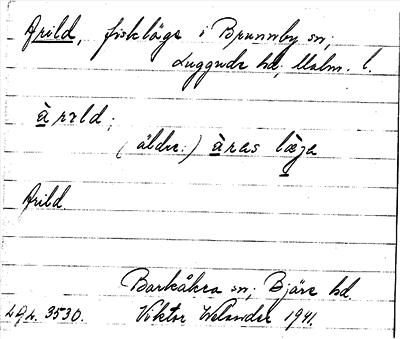 Arild, fiskläge i Brunnby sn;
Luggude hd, Malm. l.
àrəld;
(äldre:) àras lǟja
Arild
Barkåkra sn; Bjäre hd.
Lg4. 3530. Viktor Welander 1941.